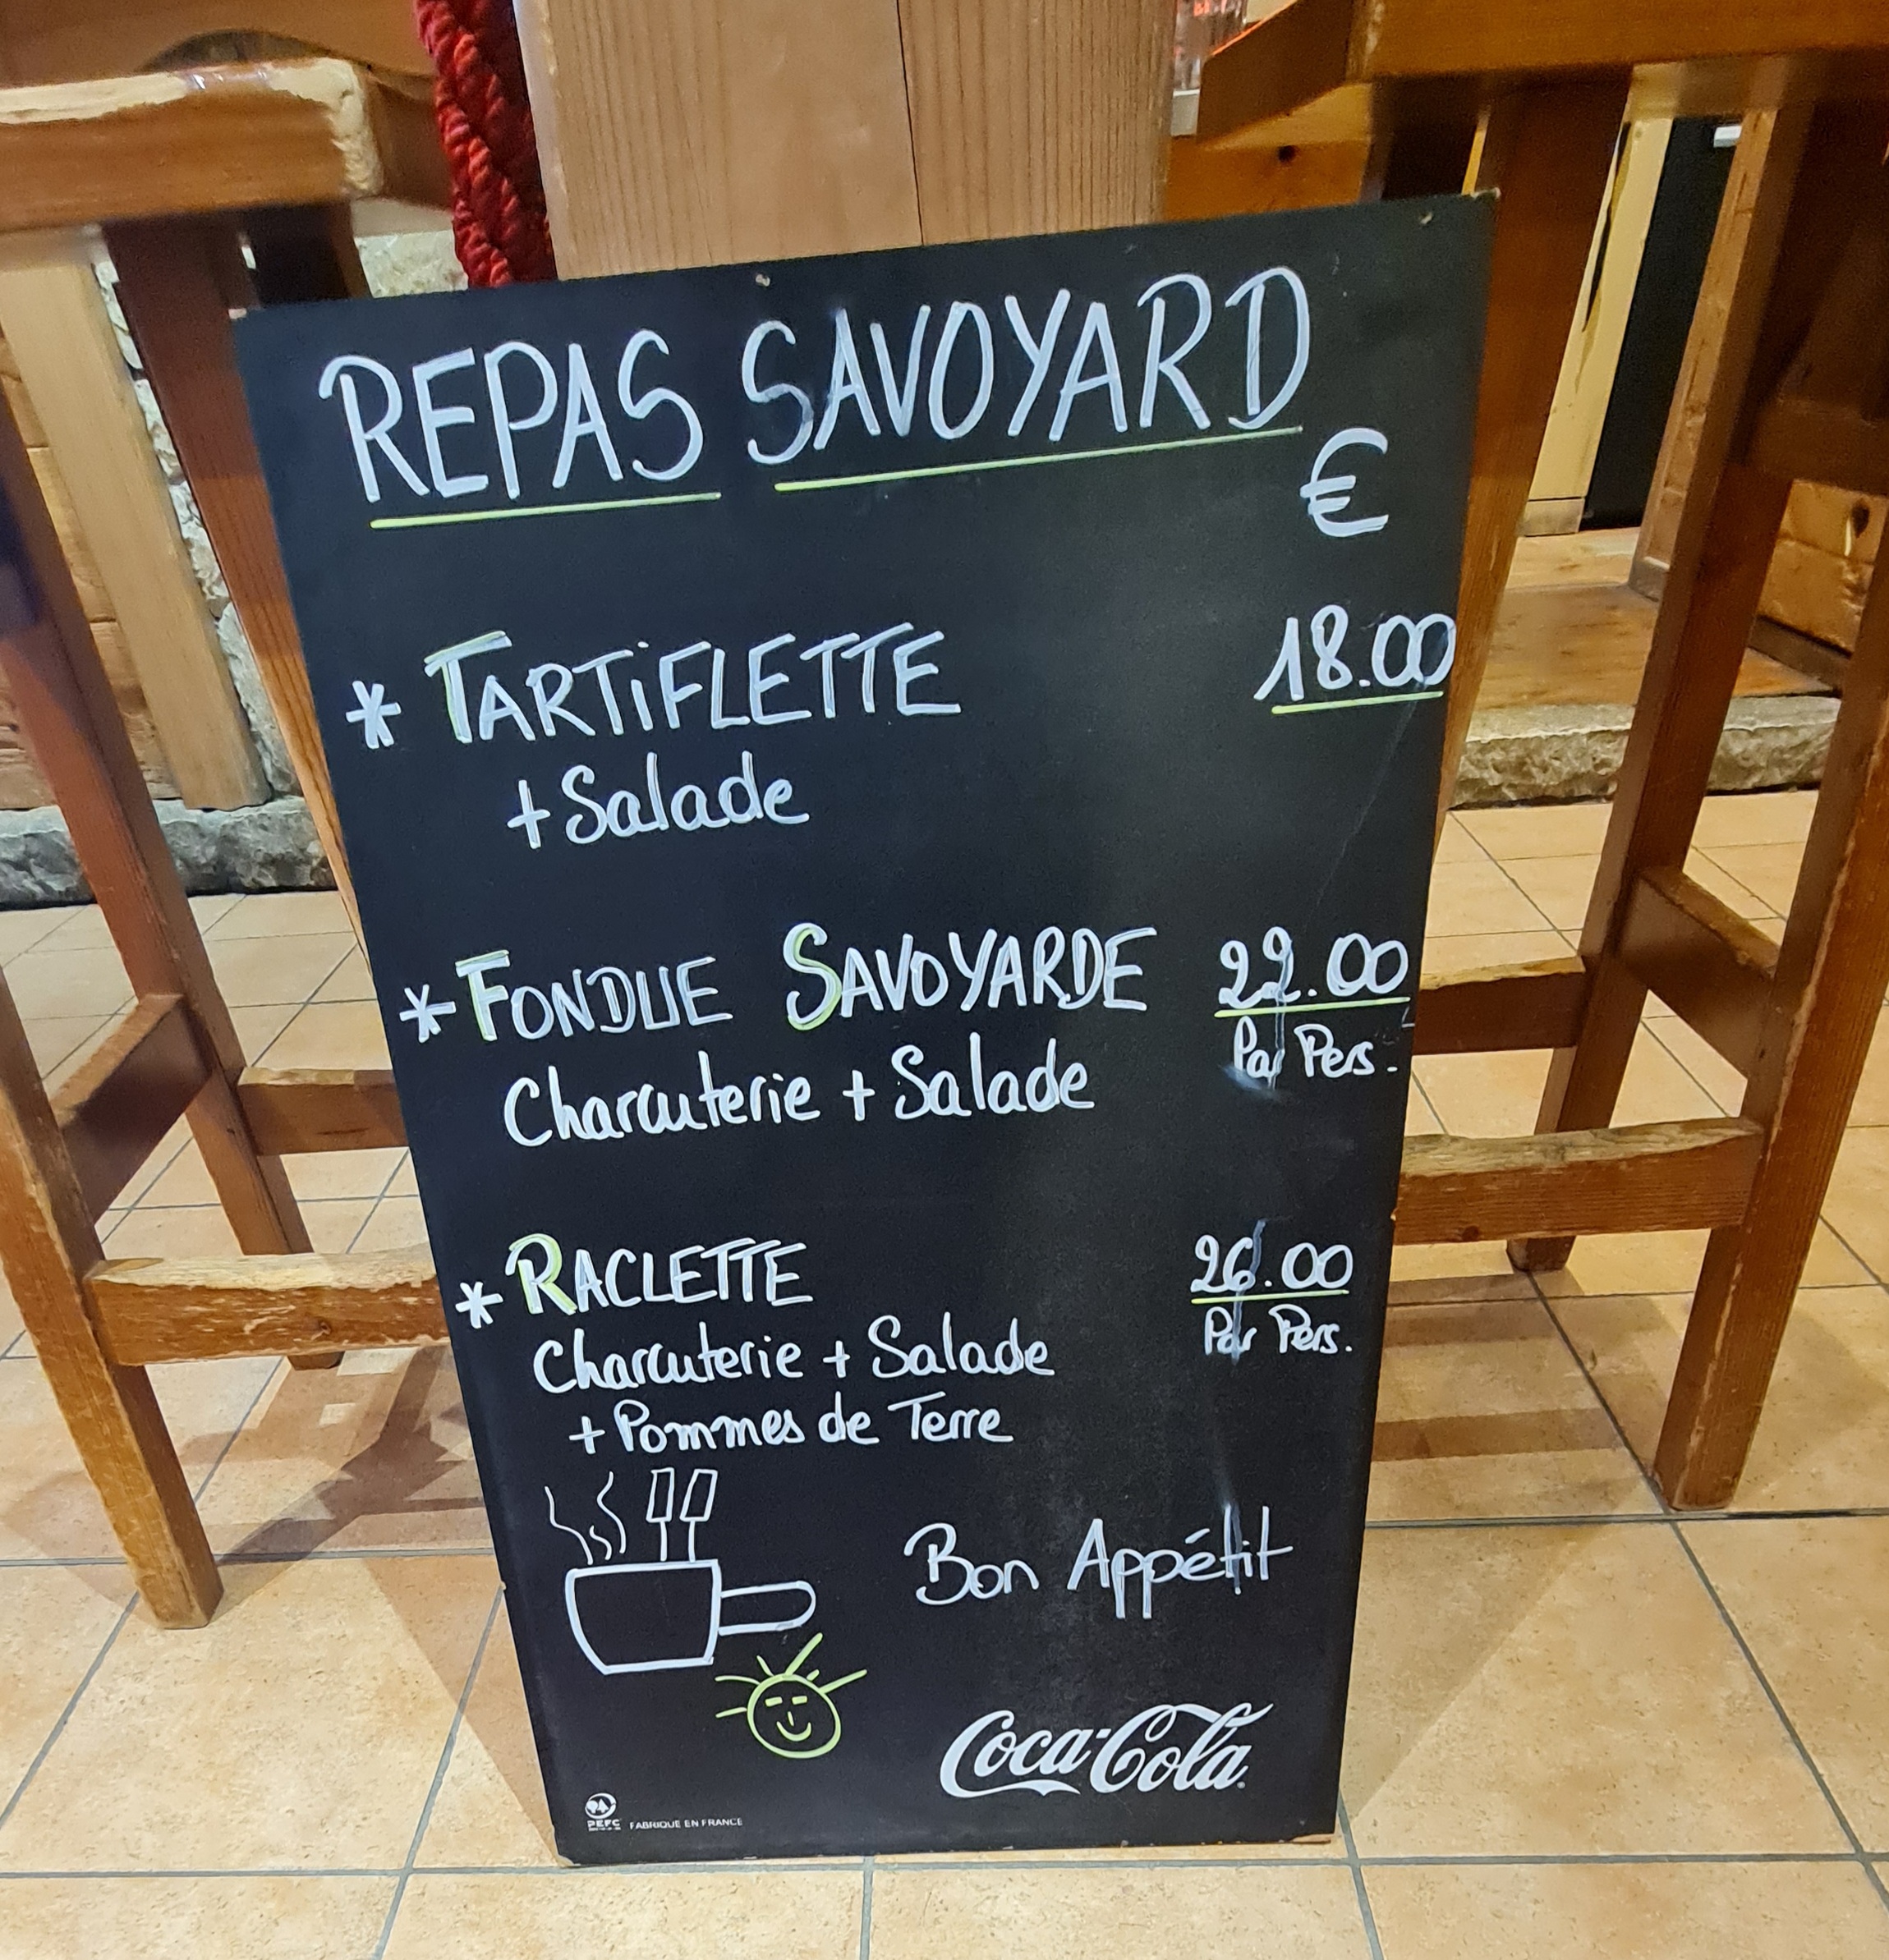 REPAS SAVOYARD
€
* TARTiFLETTE 18.00
+ Salade
* FONDUE SAVOYARDE 22.00
Par Pers.
Charcuterie + Salade
* RACLETTE 26.00
Par Pers.
Charcuterie + Salade
+ Pommes de Terre
Bon Appétit
Coca-Cola
PEFC FABRIQUE EN FRANCE